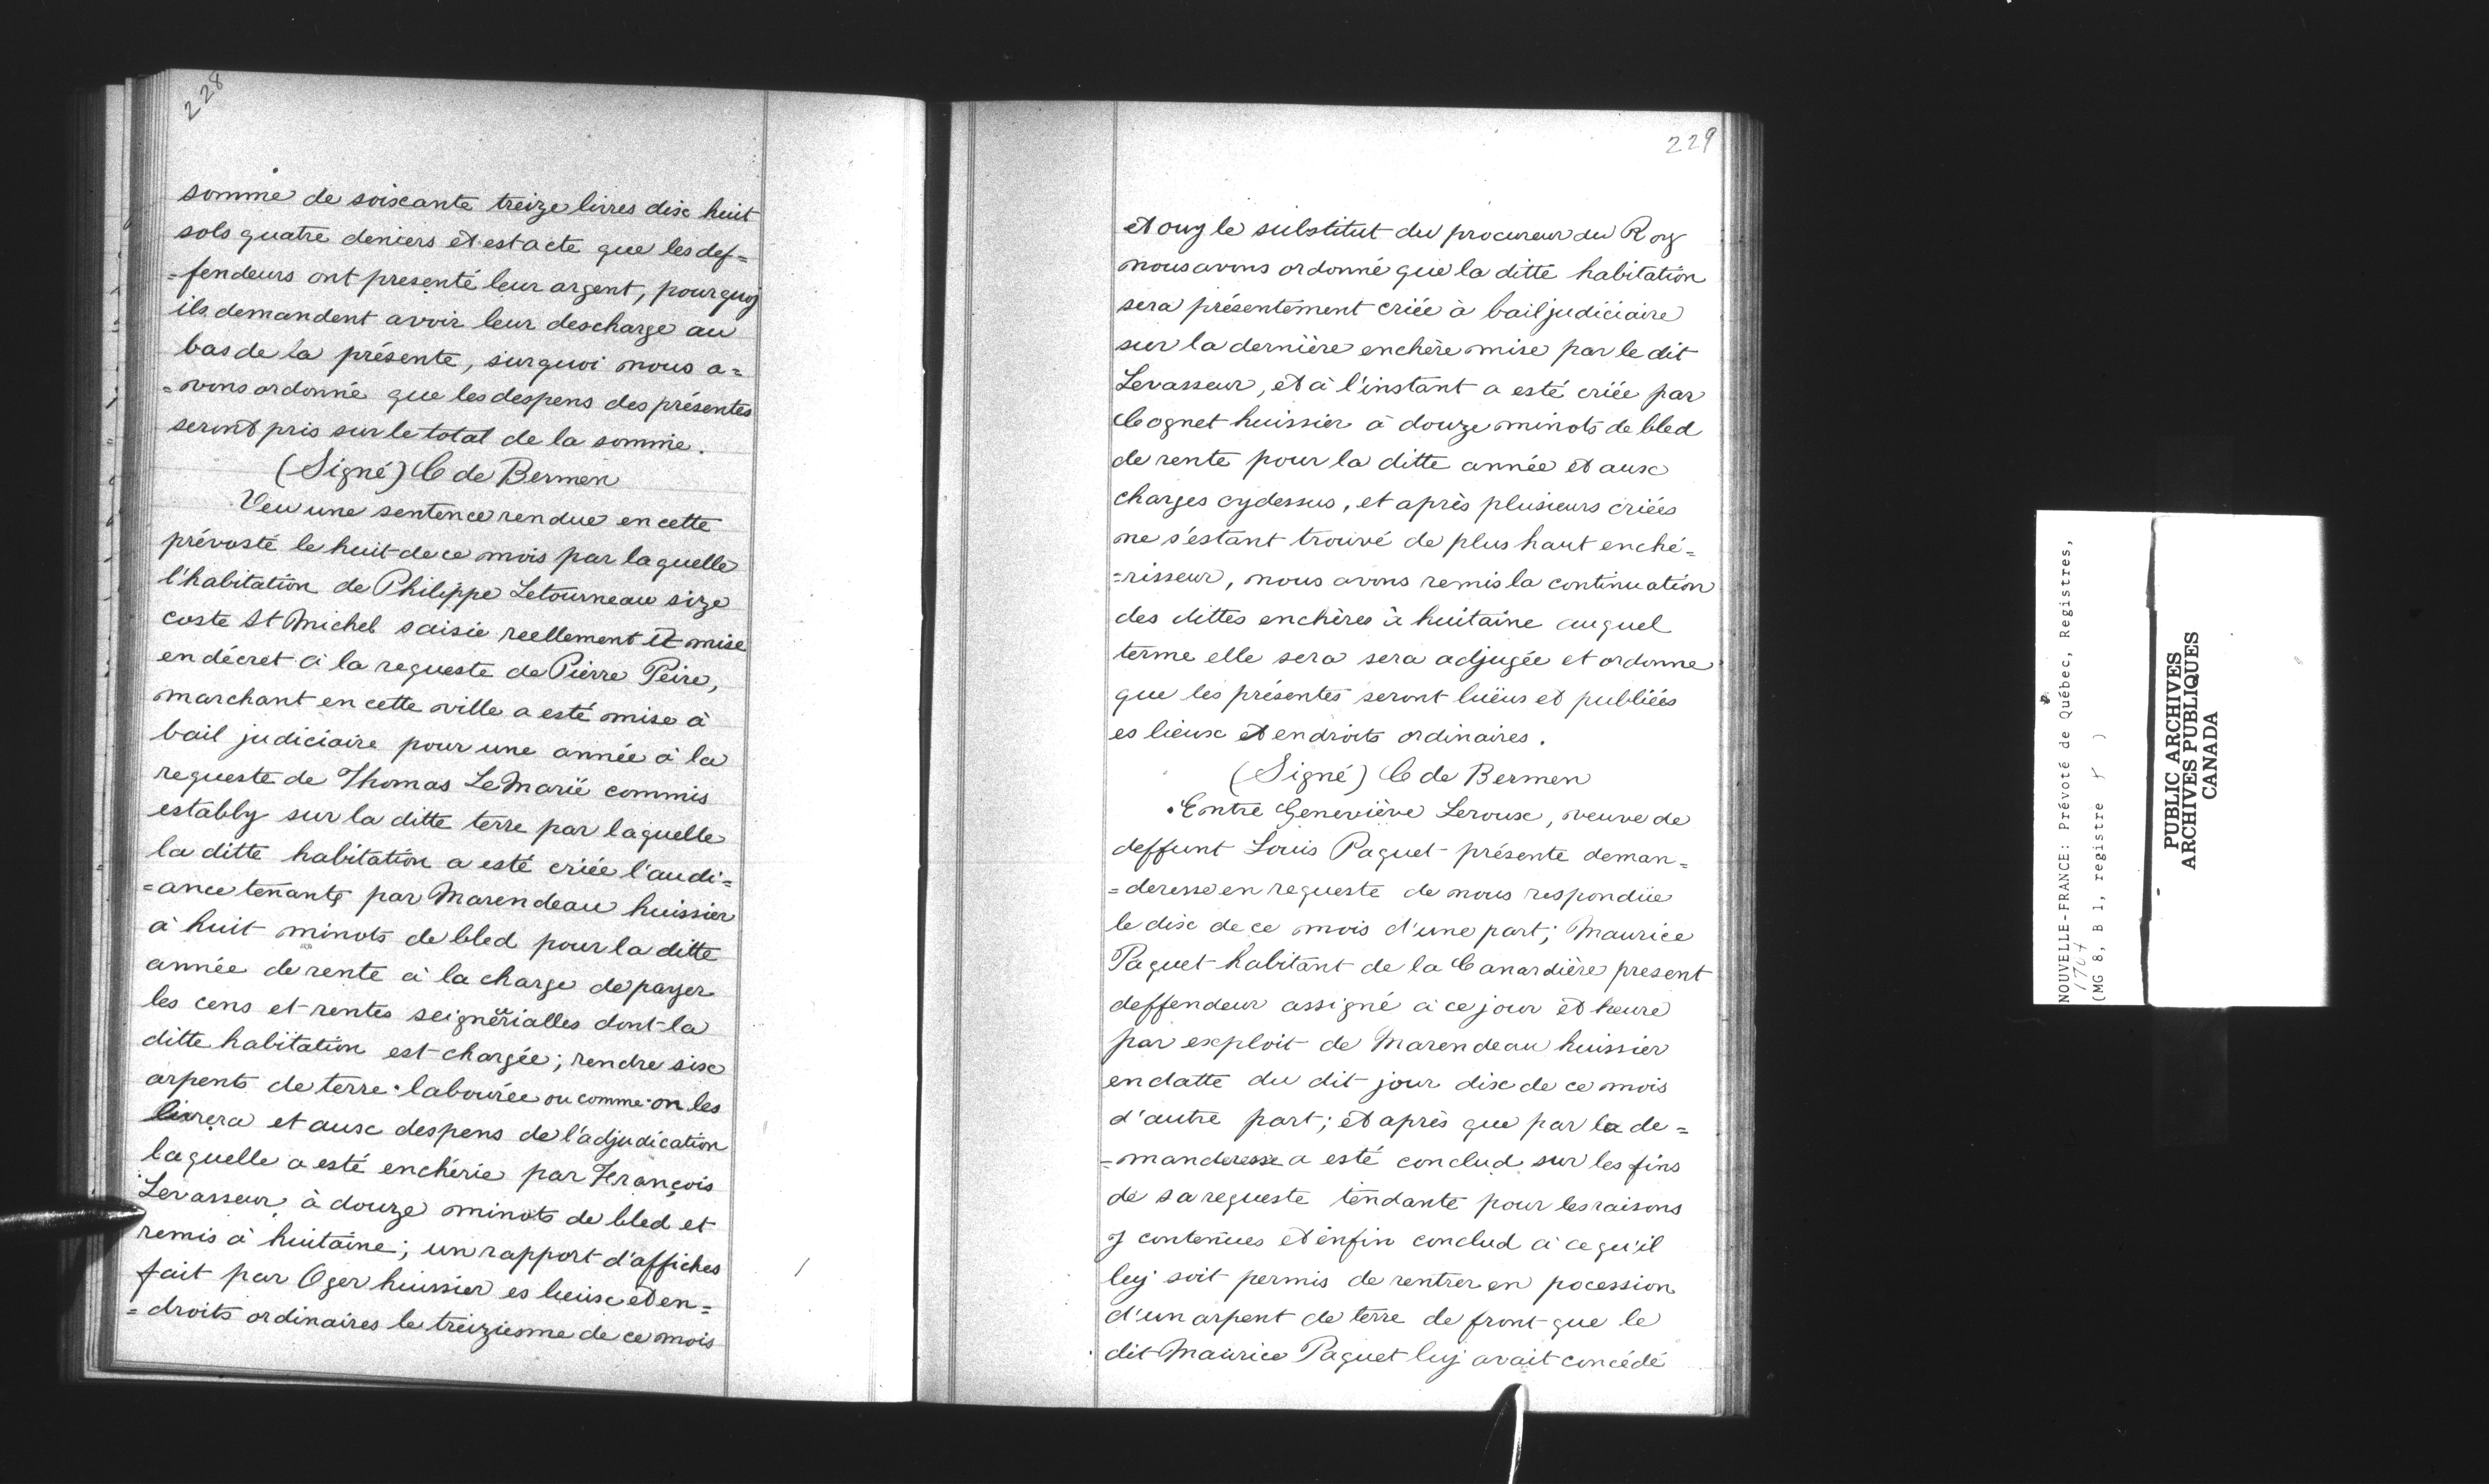 228
somme de soixante treize livres dix huit
sols quatre deniers et est acte que les def=
=fendeurs ont presenté leur argent, pourquoy
ils demandent avoir leur descharge au
bas de la présente, surquoi nous a=
=vons ordonné que les despens des présentes
seront pris sur le total de la somme.
(Signé) C de Bermen
Veu une sentence rendue en cette
prévosté le huit de ce mois par laquelle
l'habitation de Philippe Letourneau size
coste St Michel saisie reellement et mise
en décret à la requeste de Pierre Peire,
marchant en cette ville a esté mise à
bail judiciaire pour une année à la
requeste de Thomas LeMarié commis
estably sur la ditte terre par laquelle
la ditte habitation a esté criée l'audi=
=ance tenante par Marendeau huissier
à huit minots de bled pour la ditte
année de rente à la charge de payer
les cens et rentes seigneurialles dont la
ditte habitation est chargée; rendre six
arpents de terre labourée ou comme on les
livrera et aux despens de l'adjudication
laquelle a esté enchérie par François
Levasseur à douze minots de bled et
remis à huitaine; un rapport d'affiches
fait par Oger huissier es lieux et en=
=droits ordinaires le treiziesme de ce mois
229
et ouy le substitut du procureur du Roy
nous avons ordonné que la ditte habitation
sera présentement criée à bail judiciaire
sur la dernière enchère mise par le dit
Levasseur, et à l'instant a esté criée par
Cognet huissier à douze minots de bled
de rente pour la ditte année et aux
charges cydessus, et après plusieurs criées
ne s'estant trouvé de plus haut enché=
=risseur, nous avons remis la continuation
des dittes enchères à huitaine auquel
terme elle sera sera adjugée et ordonne
que les présentes seront luëus et publiées
es lieux et endroits ordinaires.
(Signé) C de Bermen
Entre Geneviève Leroux, veuve de
deffunt Louis Paquet présente deman=
=deresse en requeste de nous respondüe
le dix de ce mois d'une part; Maurice
Paquet habitant de la Canardière present
deffendeur assigné à ce jour et heure
par exploit de Marendeau huissier
en datte du dit jour dix de ce mois
d'autre part; et après que par la de=
=manderesse a esté conclud sur les fins
de sa requeste tendante pour les raisons
y contenues et enfin conclud à ce qu'il
luy soit permis de rentrer en pocession
d'un arpent de terre de front que le
dit Maurice Paquet luy avait concédé
NOUVELLE-FRANCE: Prévoté de Québec, Registres,
1704
(MG 8, B 1, registre )
PUBLIC ARCHIVES
ARCHIVES PUBLIQUES
CANADA